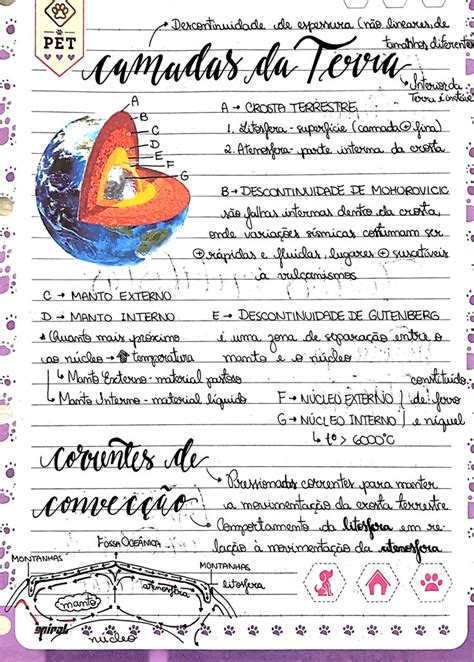 PET
Descontinuidade de espessura (não lineares, de
tamanhos diferentes
camadas da Terra
Interior da
Terra é
A → CROSTA TERRESTRE
1. Litosfera - superfície (camada ⊕ fina)
2. Atenosfera - parte interna da crosta
A
B
C
D
E
F
G
B → DESCONTINUIDADE DE MOHOROVICIC
são falhas internas dentro da crosta,
onde variações sísmicas costumam ser
⊕ rápidas e fluidas, lugares ⊕ suscetíveis
à vulcanismos
C → MANTO EXTERNO
D → MANTO INTERNO
E → DESCONTINUIDADE DE GUTENBERG
* Quanto mais próximo
ao núcleo → ⬆ temperatura
é uma zona de separação entre o
manto e o núcleo
↳ Manto Externo - material pastoso
↳ Manto Interno - material líquido
constituído
F → NÚCLEO EXTERNO de ferro
G → NÚCLEO INTERNO e níquel
↳ t° > 6000°C
correntes de
convecção
→ Pressionados correntes para manter
a movimentação da crosta terrestre
→ Comportamento da litosfera em re-
lação à movimentação da atenosfera
FOSSA OCEÂNICA
MONTANHAS
MONTANHAS
atenosfera
litosfera
manto
spiral
núcleo